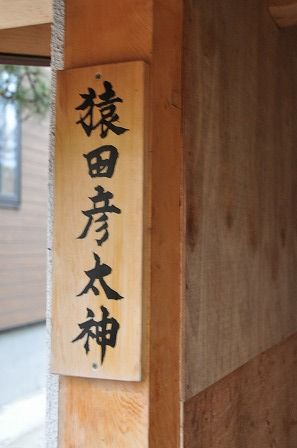 猿田彦太神